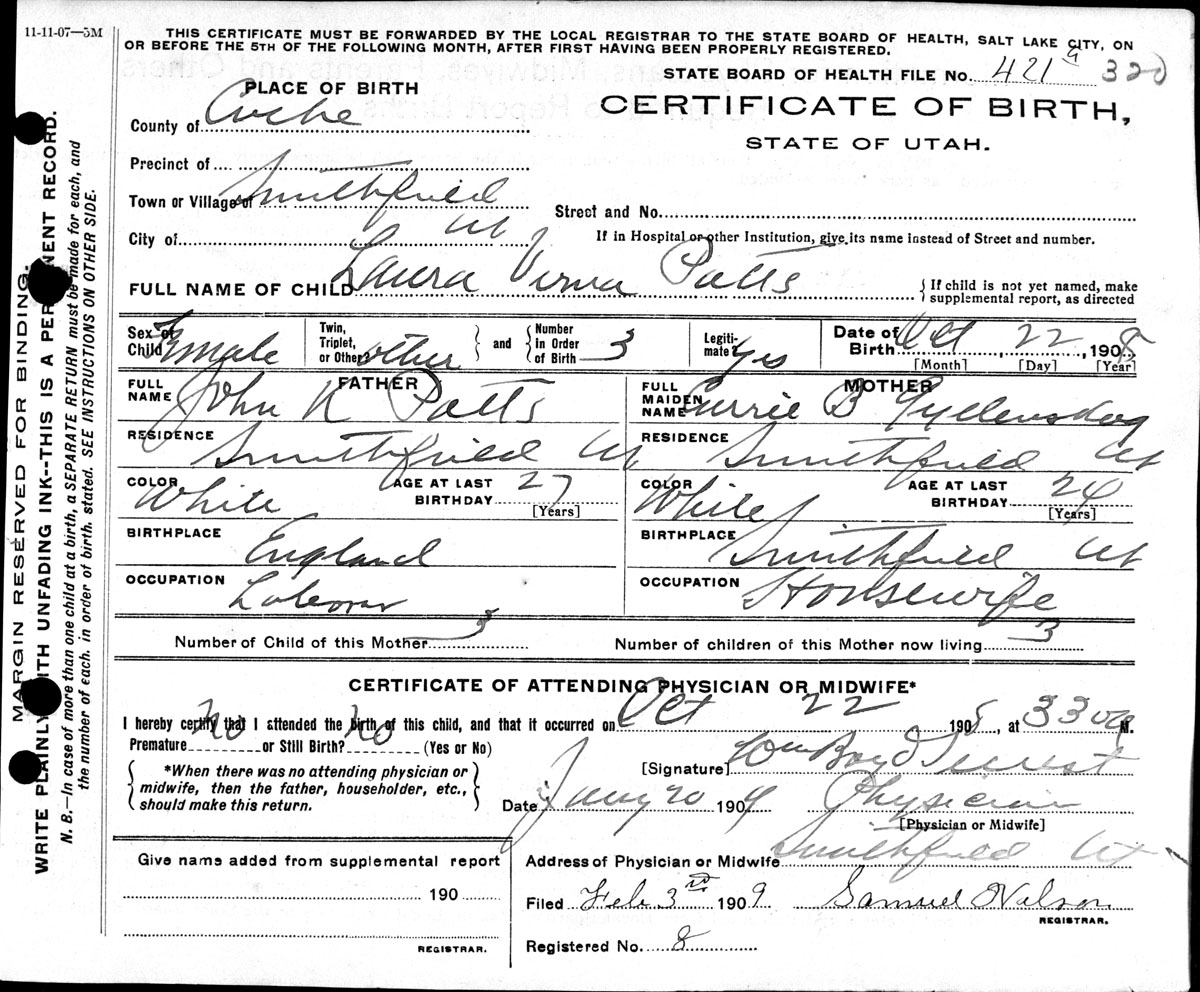 11-11-07—5M
THIS CERTIFICATE MUST BE FORWARDED BY THE LOCAL REGISTRAR TO THE STATE BOARD OF HEALTH, SALT LAKE CITY, ON
OR BEFORE THE 5TH OF THE FOLLOWING MONTH, AFTER FIRST HAVING BEEN PROPERLY REGISTERED.
STATE BOARD OF HEALTH FILE No. 421 a 320
PLACE OF BIRTH
CERTIFICATE OF BIRTH,
STATE OF UTAH.
County of Cache
Precinct of
Town or Village of Smithfield
Street and No.
City of Ut
If in Hospital or other Institution, give its name instead of Street and number.
FULL NAME OF CHILD Laura Verna Patts
{If child is not yet named, make
supplemental report, as directed
Sex of Child Female
Twin, Triplet, or Other? other
and
Number in Order of Birth 3
Legitimate? yes
Date of Birth Oct 22, 1908
[Month] [Day] [Year]
FATHER
FULL NAME John K Patts
MOTHER
FULL MAIDEN NAME Carrie B Gyllenskog
RESIDENCE Smithfield Ut
RESIDENCE Smithfield Ut
COLOR White AGE AT LAST BIRTHDAY 27 [Years]
COLOR White AGE AT LAST BIRTHDAY 24 [Years]
BIRTHPLACE England
BIRTHPLACE Smithfield Ut
OCCUPATION Laborer
OCCUPATION Housewife
Number of Child of this Mother 3
Number of children of this Mother now living 3
CERTIFICATE OF ATTENDING PHYSICIAN OR MIDWIFE*
I hereby certify that I attended the birth of this child, and that it occurred on Oct 22 1908, at 330 a M.
Premature No or Still Birth? No (Yes or No)
*When there was no attending physician or
midwife, then the father, householder, etc.,
should make this return.
[Signature] Wm Boyd
Date Jany 20 1909 Physician
[Physician or Midwife]
Give name added from supplemental report
190
REGISTRAR.
Address of Physician or Midwife Smithfield Ut
Filed Feb 3rd 1909 Samuel Nelson
REGISTRAR.
Registered No. 8
MARGIN RESERVED FOR BINDING.
WRITE PLAINLY WITH UNFADING INK--THIS IS A PERMANENT RECORD.
N. B.—In case of more than one child at a birth, a SEPARATE RETURN must be made for each, and
the number of each. in order of birth. stated. SEE INSTRUCTIONS ON OTHER SIDE.